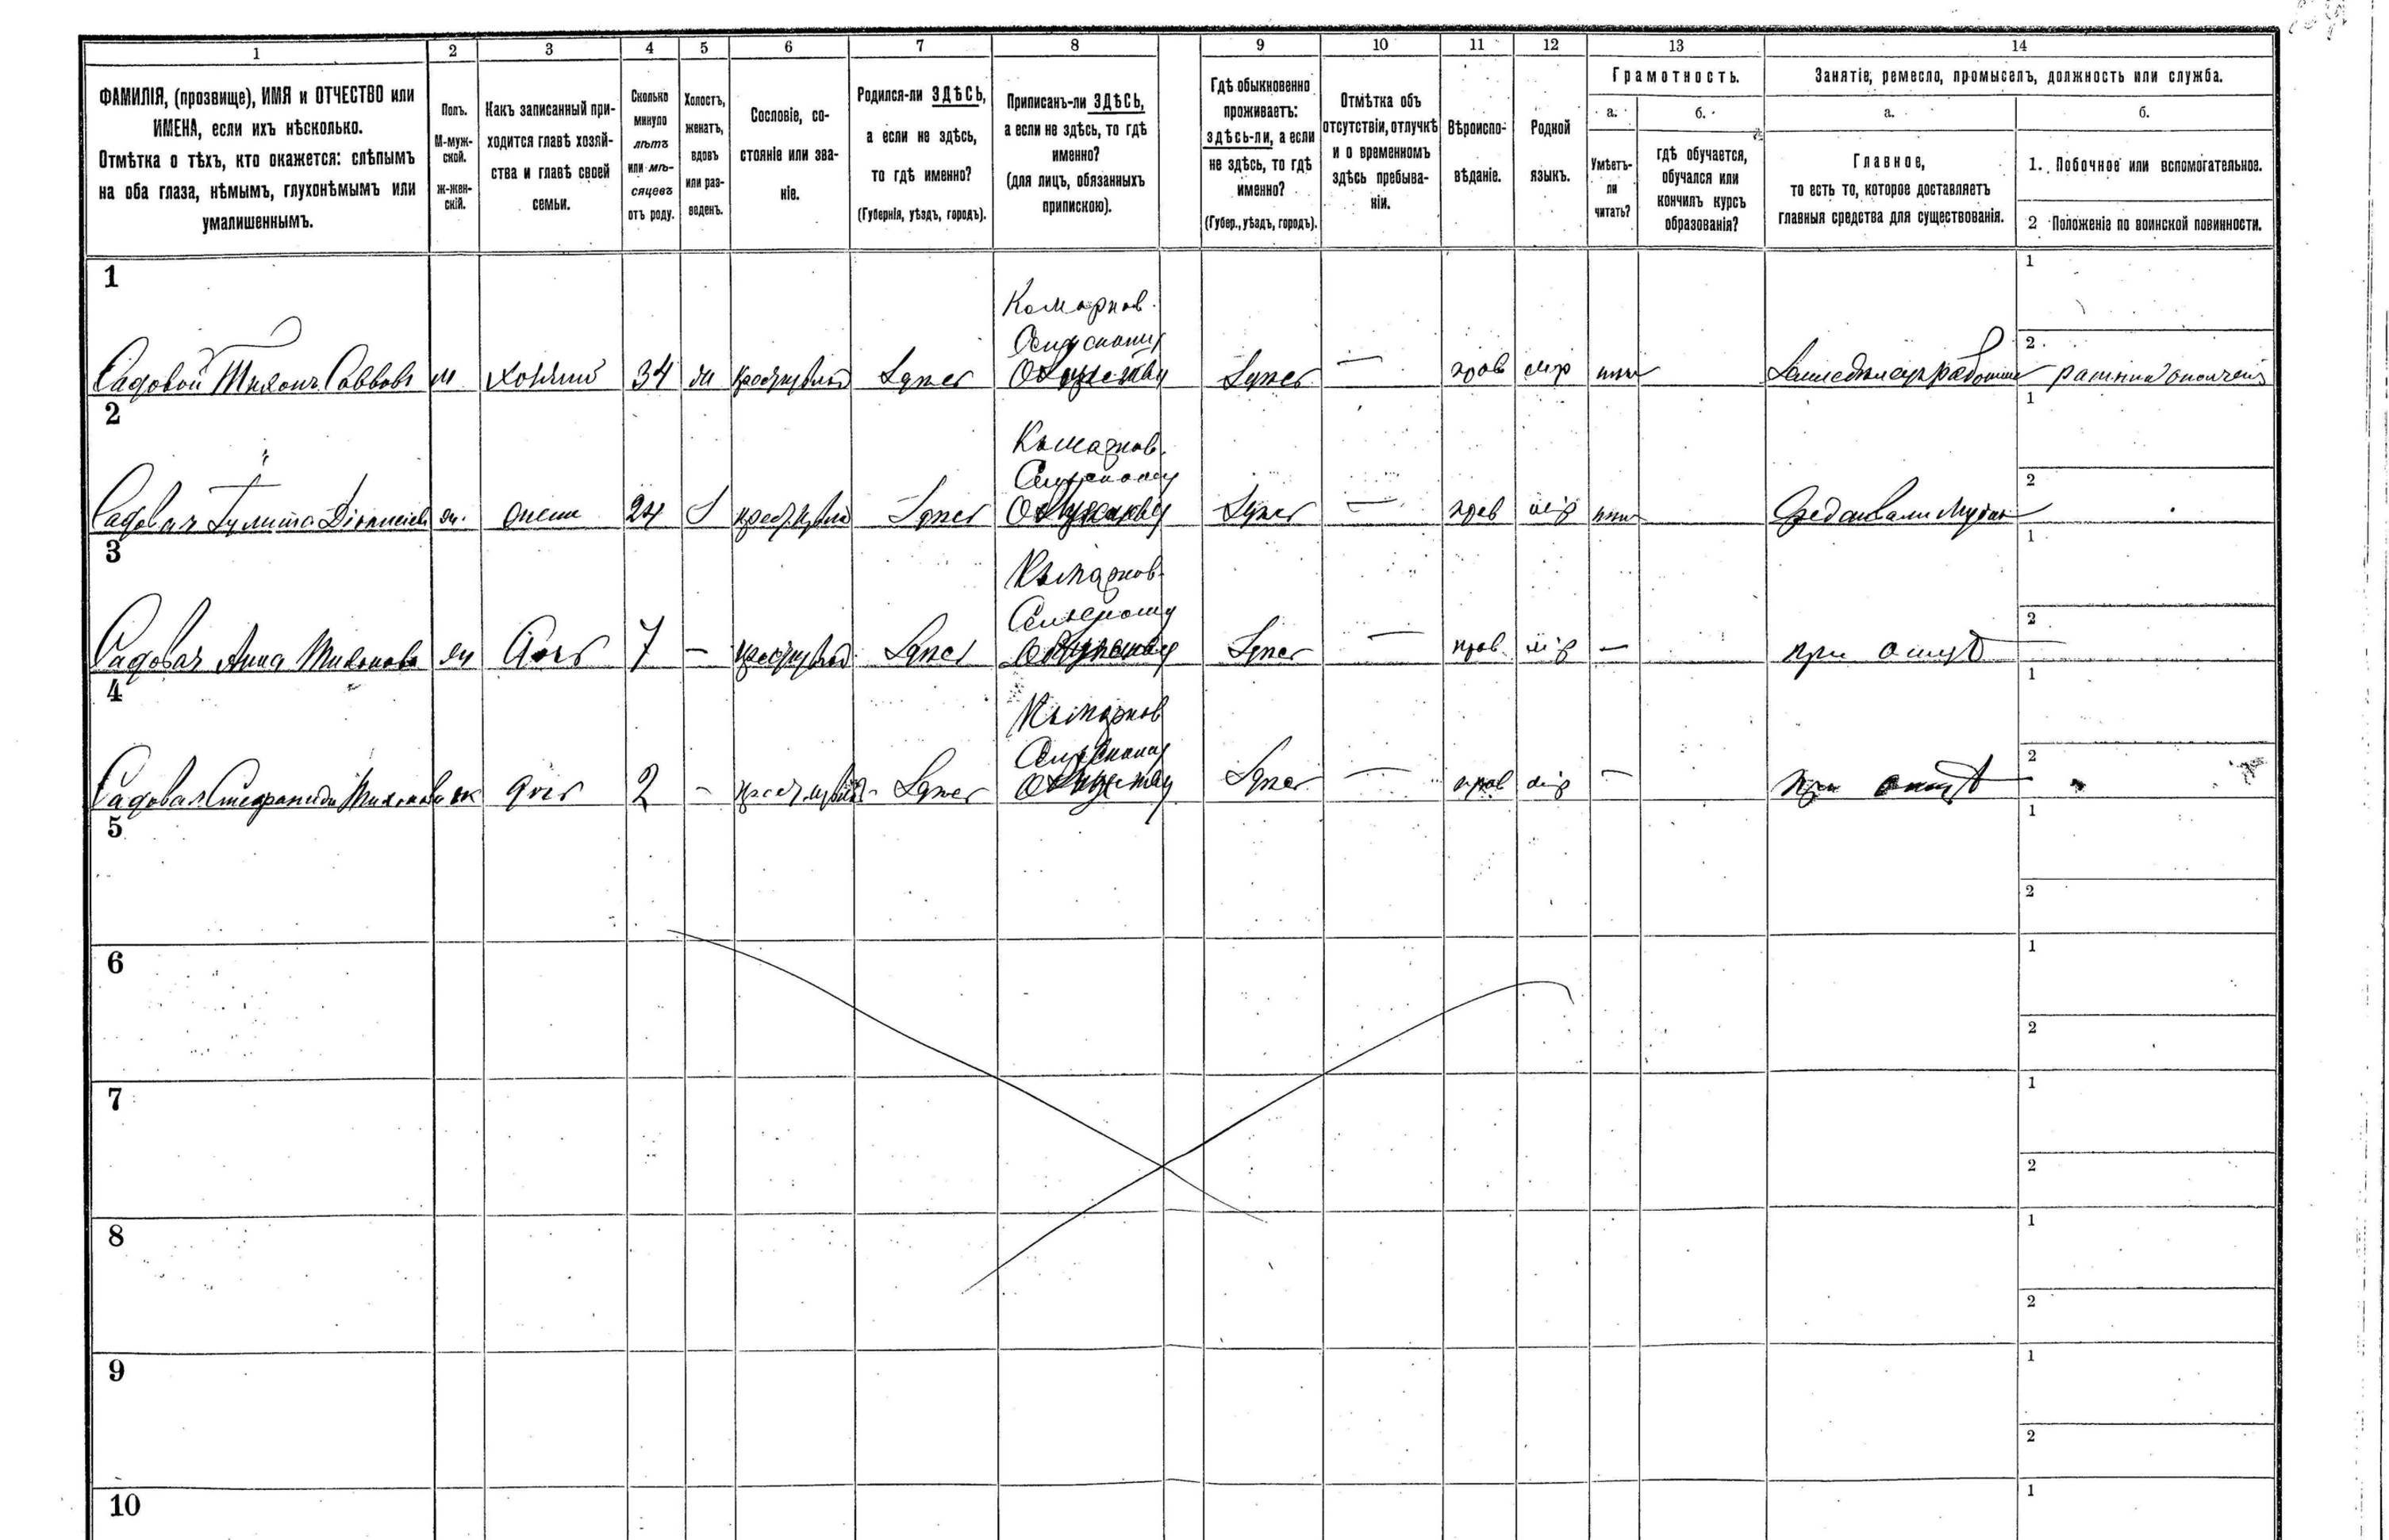 1 2 3 4 5 6 7 8 9 10 11 12 13 14
ФАМИЛІЯ, (прозвище), ИМЯ и ОТЧЕСТВО или
ИМЕНА, если ихъ нѣсколько.
Отмѣтка о тѣхъ, кто окажется: слѣпымъ
на оба глаза, нѣмымъ, глухонѣмымъ или
умалишеннымъ.
Полъ.
М-муж-
ской.
ж-жен-
скій.
Какъ записанный при-
ходится главѣ хозяй-
ства и главѣ своей
семьи.
Сколько
минуло
лѣтъ
или мѣ-
сяцевъ
отъ роду.
Холостъ,
женатъ,
вдовъ
или раз-
веденъ.
Сословіе, со-
стояніе или зва-
ніе.
Родился-ли ЗДѢСЬ,
а если не здѣсь,
то гдѣ именно?
(Губернія, уѣздъ, городъ).
Приписанъ-ли ЗДѢСЬ,
а если не здѣсь, то гдѣ
именно?
(для лицъ, обязанныхъ
припискою).
Гдѣ обыкновенно
проживаетъ:
здѣсь-ли, а если
не здѣсь, то гдѣ
именно?
(Губер., уѣздъ, городъ).
Отмѣтка объ
отсутствіи, отлучкѣ
и о временномъ
здѣсь пребыва-
ніи.
Вѣроиспо-
вѣданіе.
Родной
языкъ.
Грамотность.
а.
Умѣетъ-
ли
читать?
б.
гдѣ обучается,
обучался или
кончилъ курсъ
образованія?
Занятіе, ремесло, промыселъ, должность или служба.
а.
Главное,
то есть то, которое доставляетъ
главныя средства для существованія.
б.
1. Побочное или вспомогательное.
2 Положеніе по воинской повинности.
1
1
2
Садовой Тихонъ Саввовъ м хозяинъ 34 ж здесь здесь — прав мр
2
1
2
Садовая Дионисіев ж. жена 24 здесь здесь — прав мр
3
1
2
Садовая Анна Тихонова ж дочь 7 — здесь здесь — прав мр — при отцѣ
4
1
2
Садовая Стефанида Тихонова ж дочь 2 — здесь здесь — прав мр — при отцѣ
5
1
2
6
1
2
7
1
2
8
1
2
9
1
2
10
1